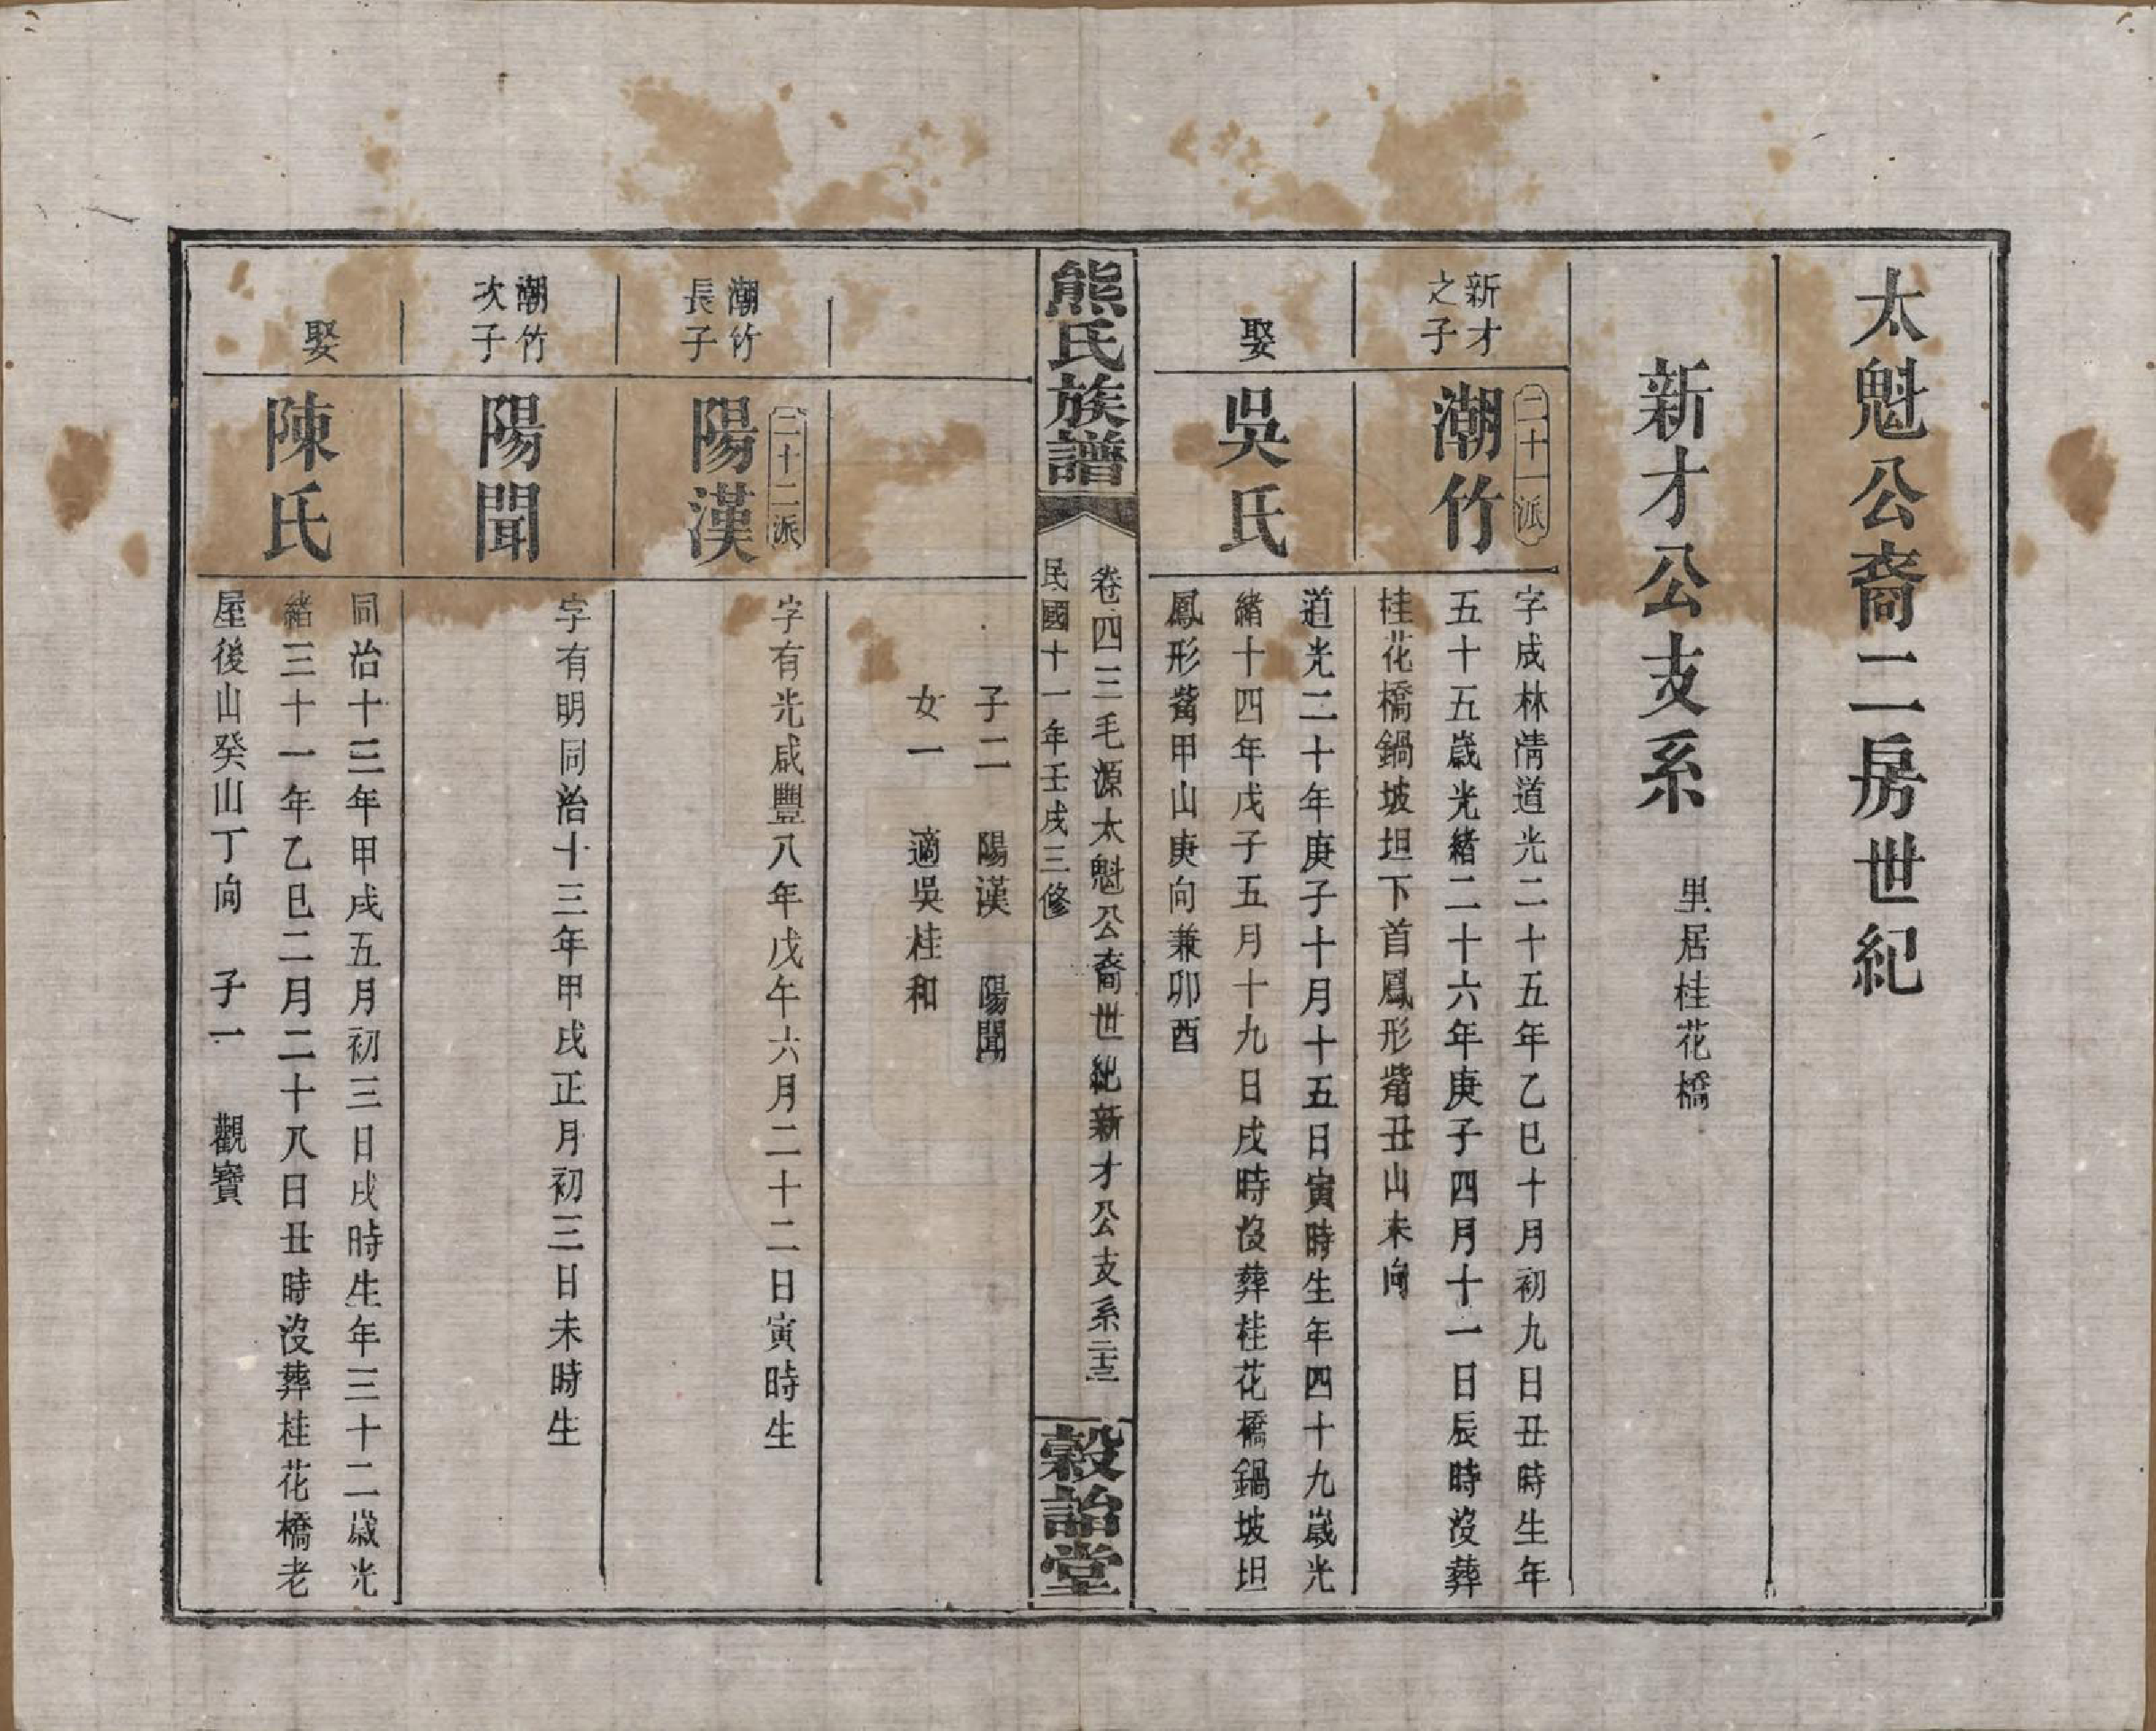 太魁公裔二房世紀
新才公支系
里居桂花橋
新才
之子
二十一派
潮竹
字成林淸道光二十五年乙巳十月初九日丑時生年
五十五歲光緒二十六年庚子四月十一日辰時沒葬
桂花橋鍋坡坦下首鳳形觜丑山未向
娶
吳氏
道光二十年庚子十月十五日寅時生年四十九歲光
緒十四年戊子五月十九日戌時沒葬桂花橋鍋坡坦
鳳形觜甲山庚向兼卯酉
熊氏族譜
卷四三毛源太魁公裔世紀新才公支系
民國十一年壬戌三修
穀詒堂
子二 陽漢 陽聞
女一 適吳桂和
潮竹
長子
二十二派
陽漢
字有光咸豐八年戊午六月二十二日寅時生
潮竹
次子
陽聞
字有明同治十三年甲戌正月初三日未時生
娶
陳氏
同治十三年甲戌五月初三日戌時生年三十二歲光
緒三十一年乙巳二月二十八日丑時沒葬桂花橋老
屋後山癸山丁向 子一 觀寶